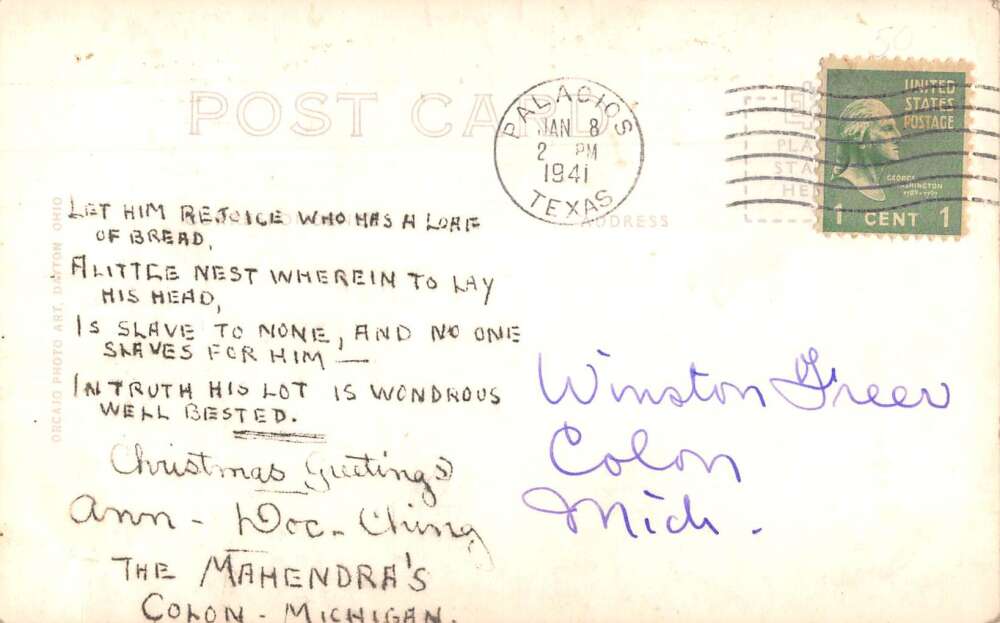 POST CARD
PALACIOS
JAN 8
2 PM
1941
TEXAS
UNITED
STATES
POSTAGE
GEORGE
WASHINGTON
1 CENT 1
PLA
STA
HE
ADDRESS
ORCAJO PHOTO ART, DAYTON OHIO
LET HIM REJOICE WHO HAS A LOAF
OF BREAD,
A LITTLE NEST WHEREIN TO LAY
HIS HEAD,
IS SLAVE TO NONE, AND NO ONE
SLAVES FOR HIM —
IN TRUTH HIS LOT IS WONDROUS
WELL BESTED.
Christmas Greetings
Ann - Doc - Ching
THE MAHENDRA'S
COLON - MICHIGAN.
Winston Greer
Colon
Mich.
50